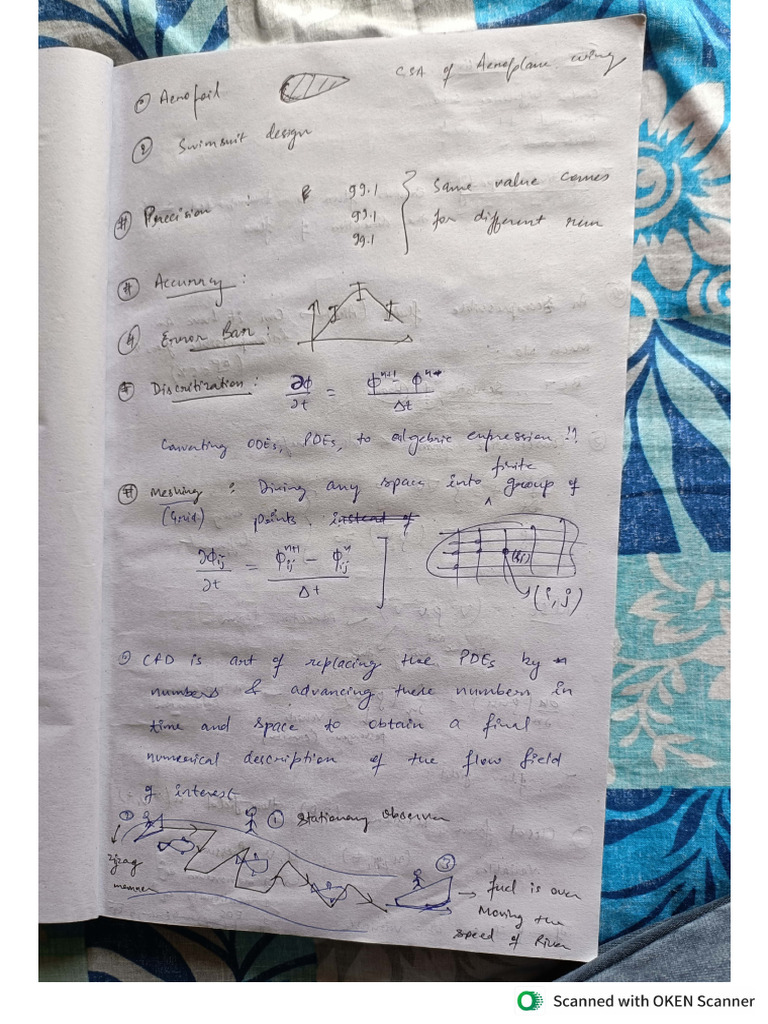 ① Aerofoil CSA of Aeroplane wing
② Swimsuit design
# Precision : 99.1 Same value comes
99.1 for different run
99.1
# Accurracy :
④ Error Bar :
# Discritization : ∂ϕ/∂t = ϕⁿ⁺¹ - ϕⁿ / Δt
Converting ODEs, PDEs, to algebric expression !!
finite
# Meshing : Diving any space into ^ group of
(Grid) points instead of
∂ϕij/∂t = ϕij ⁿ⁺¹ - ϕij ⁿ / Δt ] (i,j)
(i, j)
CFD is art of replacing the PDEs by
numbers & advancing these numbers in
time and space to obtain a final
numerical description of the flow field
of interest
② ① Stationary Observer
zigzag ③
manner → fuel is over
Moving the
speed of River
Scanned with OKEN Scanner